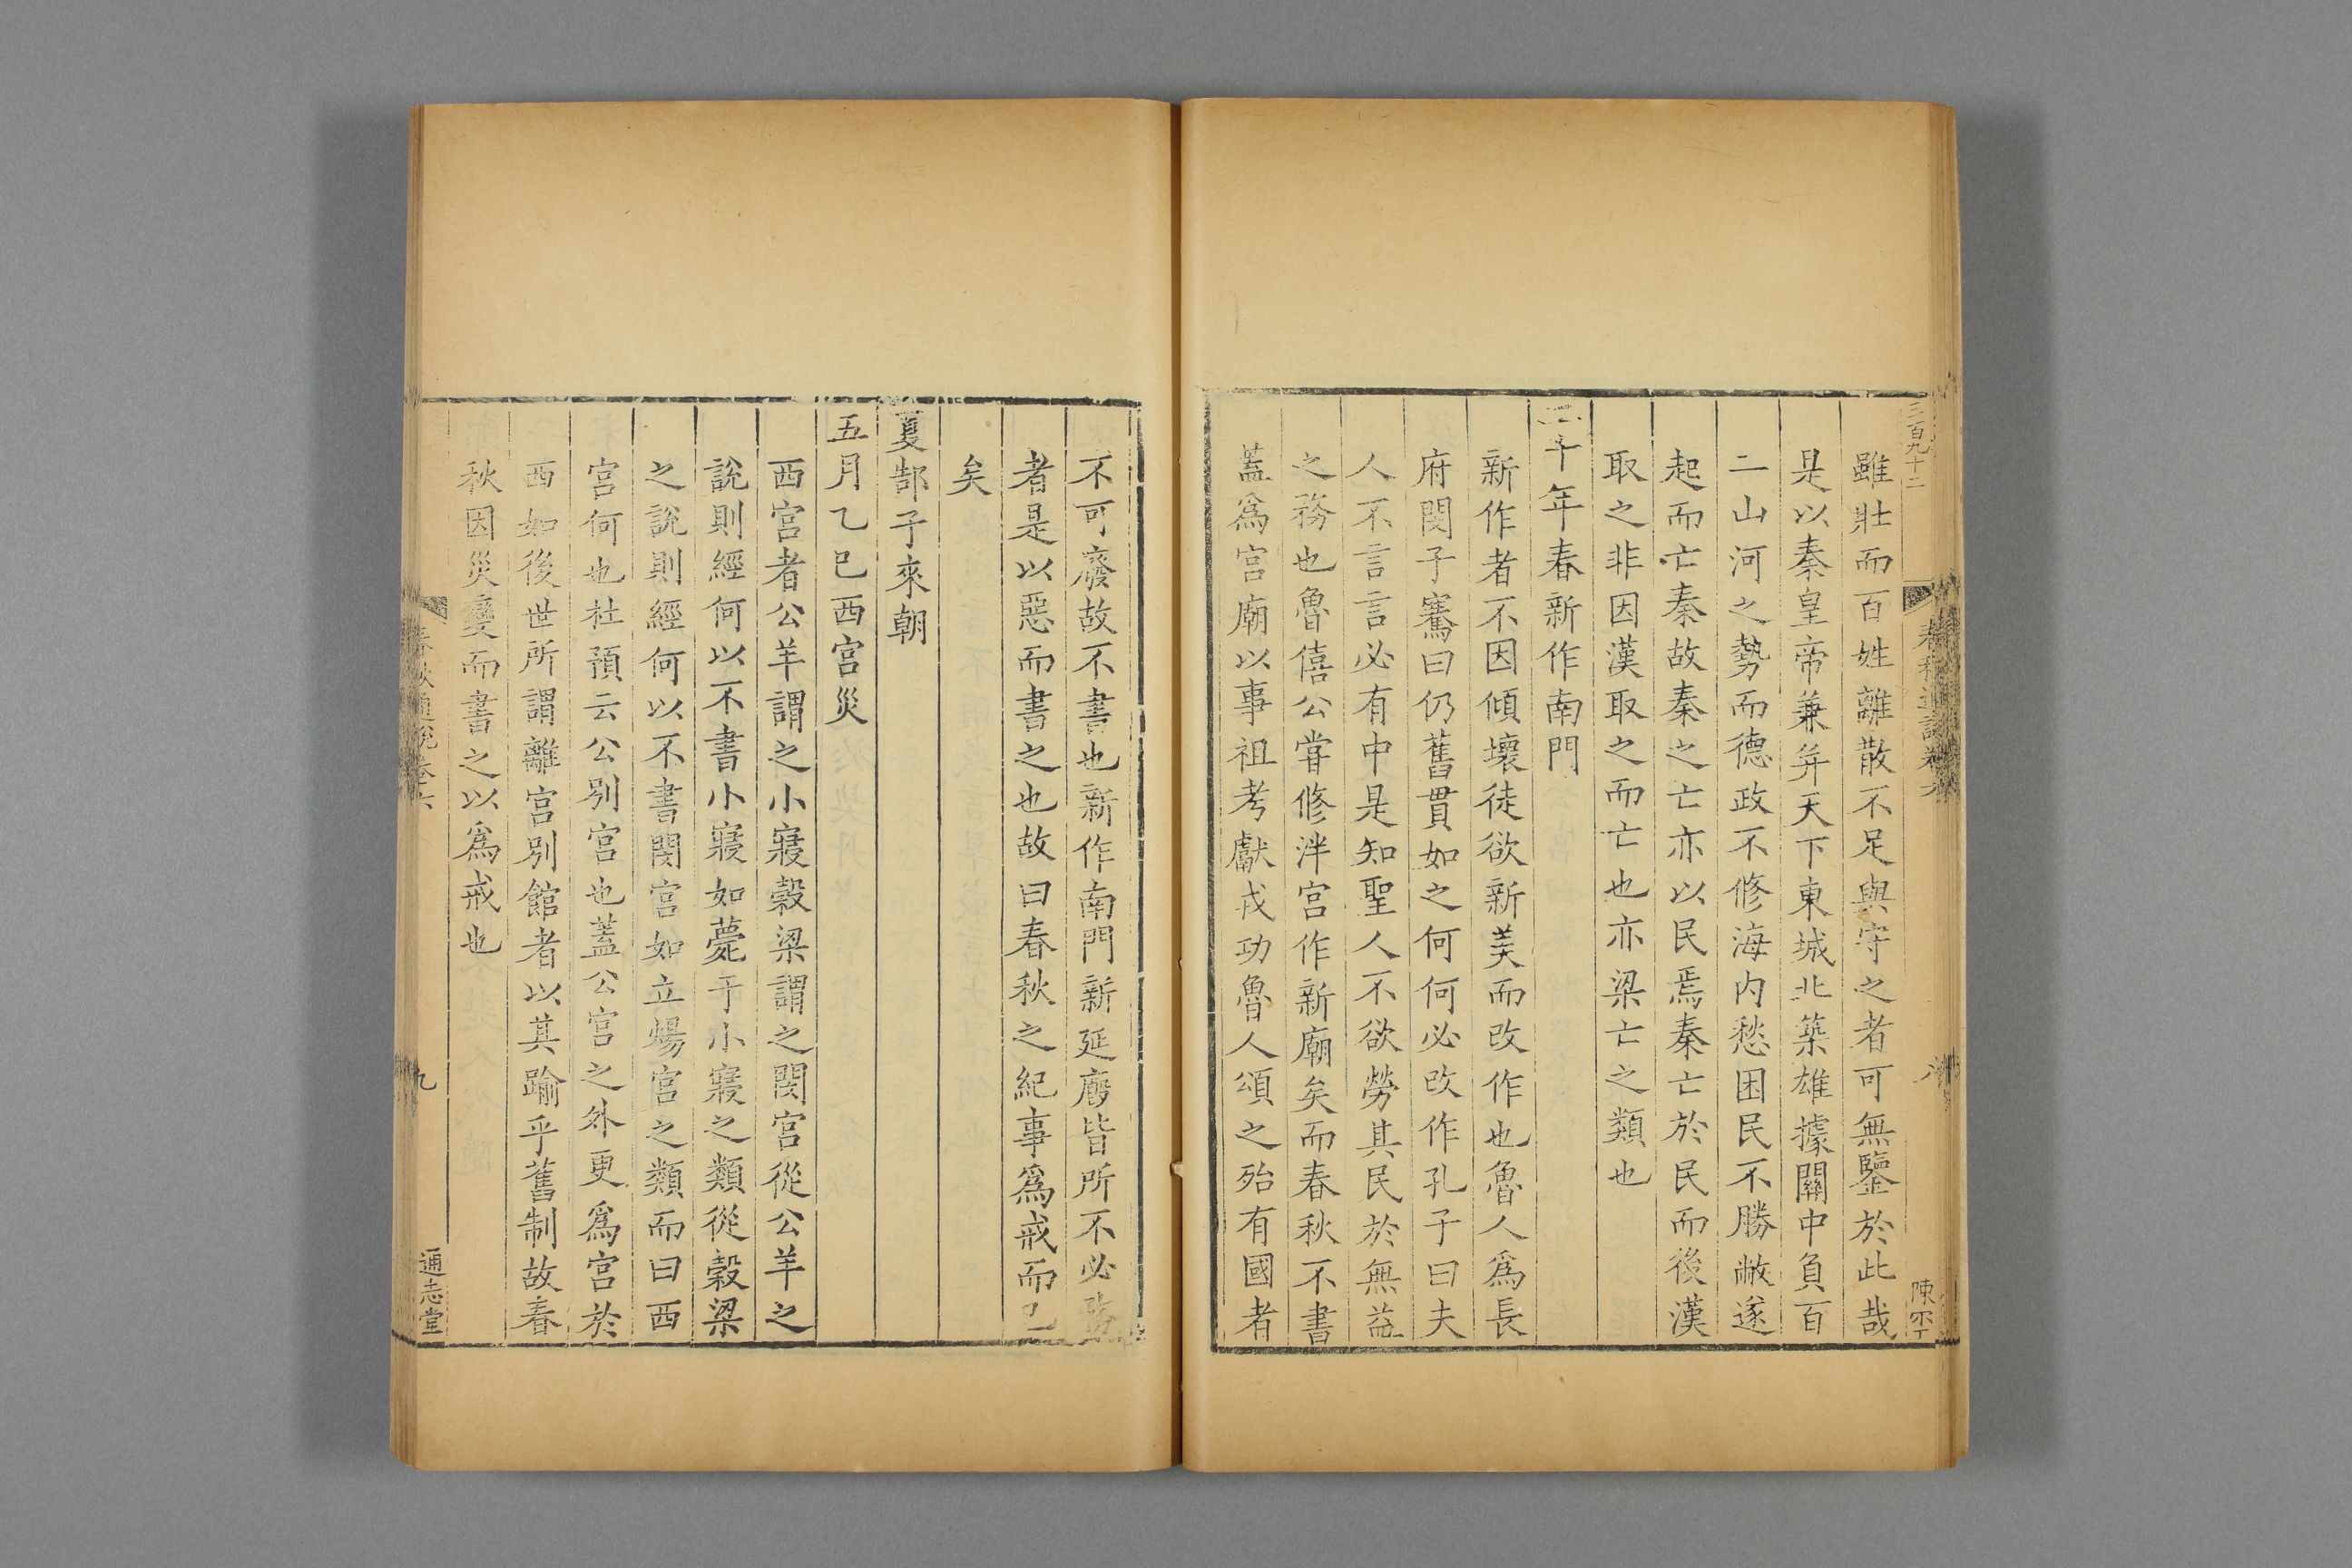 三百九十二
春秋通說卷六
八
雖壯而百姓離散不足與守之者可無鑒於此哉
是以秦皇帝兼并天下東城北築雄據關中負百
二山河之勢而德政不修海內愁困民不勝敝遂
起而亡秦故秦之亡亦以民焉秦亡於民而後漢
取之非因漢取之而亡也亦梁亡之類也
二十年春新作南門
新作者不因傾壞徒欲新美而改作也魯人爲長
府閔子騫曰仍舊貫如之何何必改作孔子曰夫
人不言言必有中是知聖人不欲勞其民於無益
之務也魯僖公甞修泮宮作新廟矣而春秋不書
蓋爲宮廟以事祖考獻戎功魯人頌之殆有國者
不可廢故不書也新作南門新延廐皆所不必
者是以惡而書之也故曰春秋之紀事爲戒而已
矣
夏郜子來朝
五月乙巳西宮災
西宮者公羊謂之小寢穀梁謂之閔宮從公羊之
說則經何以不書小寢如薨于小寢之類從穀梁
之說則經何以不書閔宮如立煬宮之類而曰西
宮何也杜預云公別宮也蓋公宮之外更爲宮於
西如後世所謂離宮別館者以其踰乎舊制故春
秋因災變而書之以爲戒也
春秋通說卷六
九
通志堂